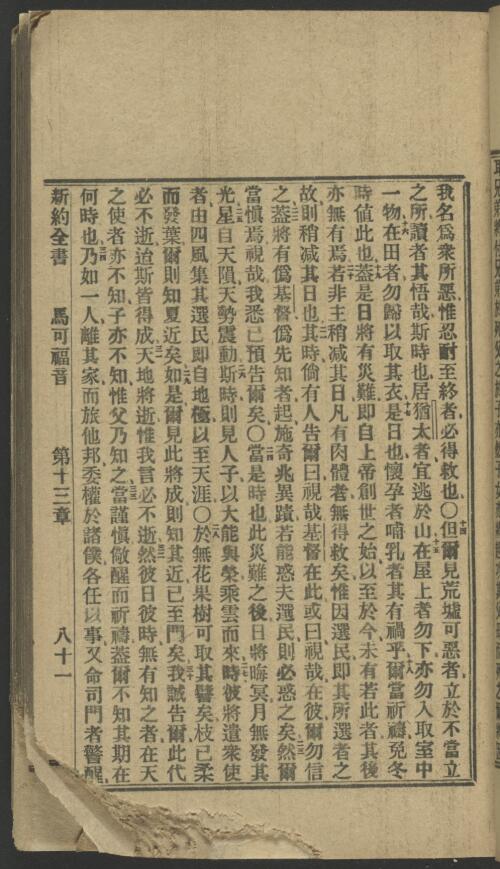 我名爲衆所惡惟忍耐至終者必得救也〇但爾見荒墟可惡者立於不當立
十四
之所讀者其悟哉斯時也居猶太者宜逃於山在屋上者勿下亦勿入取室中
十五
一物在田者勿歸以取其衣是日也懷孕者哺乳者其有禍乎爾當祈禱免冬
十六
十七
十八
時值此也蓋是日將有災難即自上帝創世之始以至於今未有若此者其後
十九
亦無有焉若非主稍减其日凡有肉體者無得救矣惟因選民即其所選者之
二十
故則稍减其日也其時倘有人告爾曰視哉基督在此或曰視哉在彼爾勿信
二一
之蓋將有僞基督僞先知者起施奇兆異蹟若能惑夫選民則必惑之矣然爾
二二
二三
當愼焉視哉我悉已預告爾矣〇當是時也此災難之後日將晦冥月無發其
二四
光星自天隕天勢震動斯時則見人子以大能與榮乘雲而來時彼將遣衆使
二五
二六
二七
者由四風集其選民即自地極以至天涯〇於無花果樹可取其譬矣枝已柔
二八
而發葉爾則知夏近矣如是爾見此將成則知其近已至門矣我誠告爾此代
二九
三十
必不逝迨斯皆得成天地將逝惟我言必不逝然彼日彼時無有知之者在天
三一
三二
之使者亦不知子亦不知惟父乃知之當謹愼儆醒而祈禱蓋爾不知其期在
三三
何時也乃如一人離其家而旅他邦委權於諸僕各任以事又命司門者警醒
三四
新約全書　馬可福音　第十三章　八十一